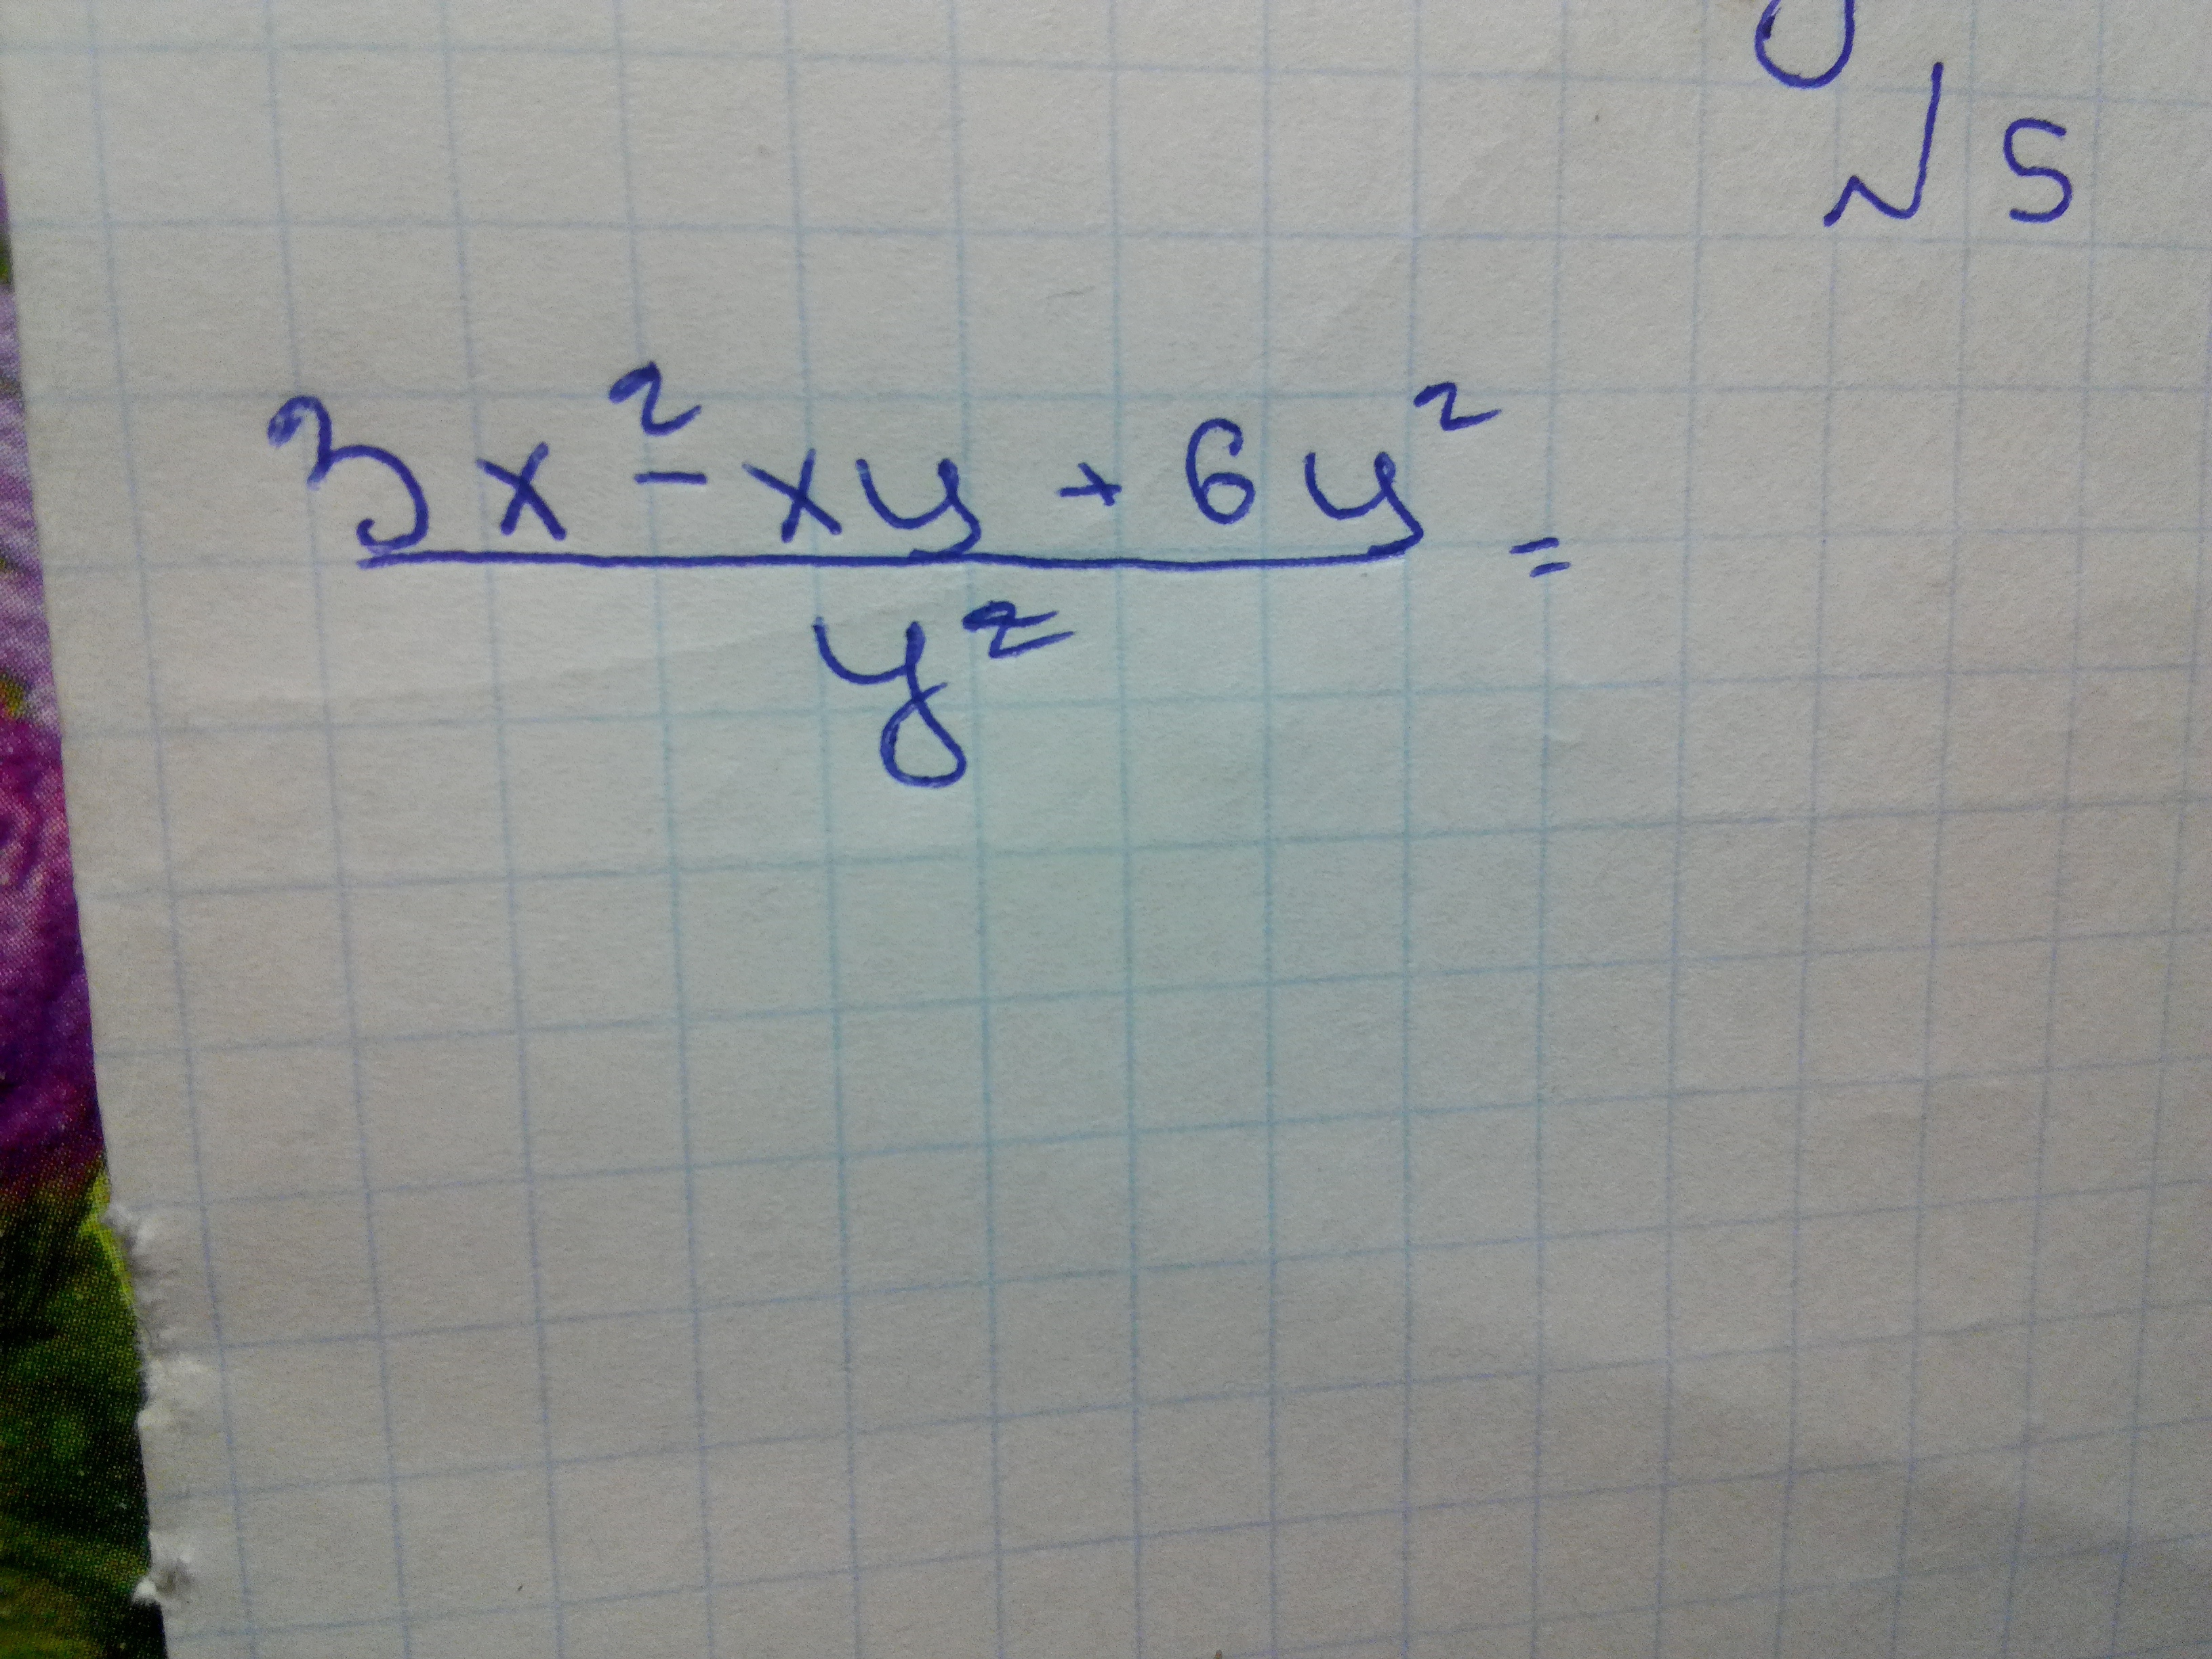 √5
3x² - xy + 6y² =
y²